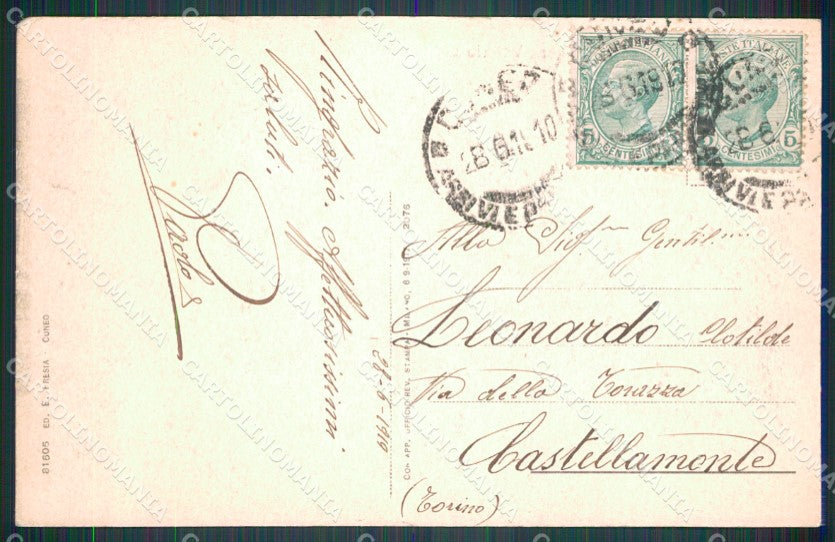 Ringrazio. Affettuosissimi
saluti.
Paola
28-6-1919
81605 ED. E. FRESIA - CUNEO
CON APP. UFFICIO REV. STAMPA, MILANO, 6-9-191 2076
28.6.19.10
ARRIVI E PA
POSTE ITALIANE
5 CENTESIMI 5
POSTE ITALIANE
CENTESIMI 5
28.6
ARRIVI E PA
Alla Sig.na Gentil.ma
Leonardo Clotilde
Via della Torazza
Castellamonte
(Torino)
CARTOLINOMANIA